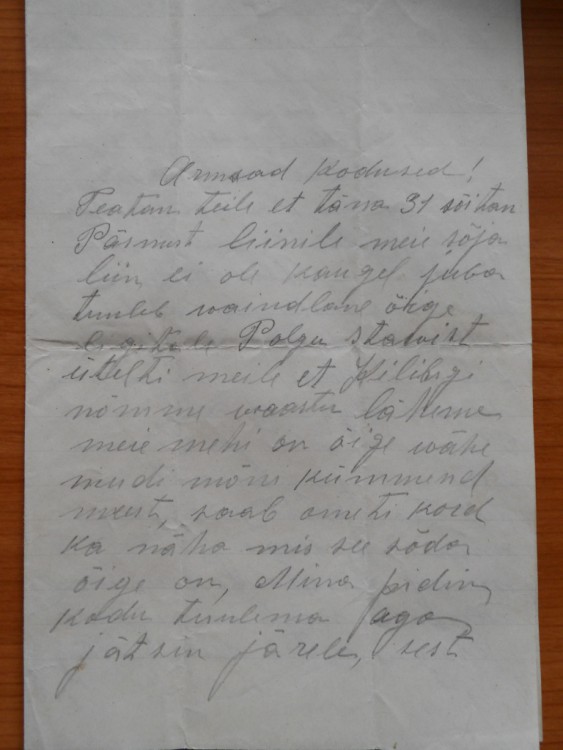 Armsad Kodused!
Teatan teile et täna 31 sõitan
Pärnust liinile meie sõja
liin ei ole kaugel juba
tuleb waindlane õige
ligitale Polgu stawist
üteldi meile et Kilingi
nõmme waastu läheme
meie mehi on õige wähe
muidi mõni kümmend
meest, saab ometi kord
ka näha mis see sõda
õige on, Mina pidin
kodu tulema aga
jätsin järele, sest